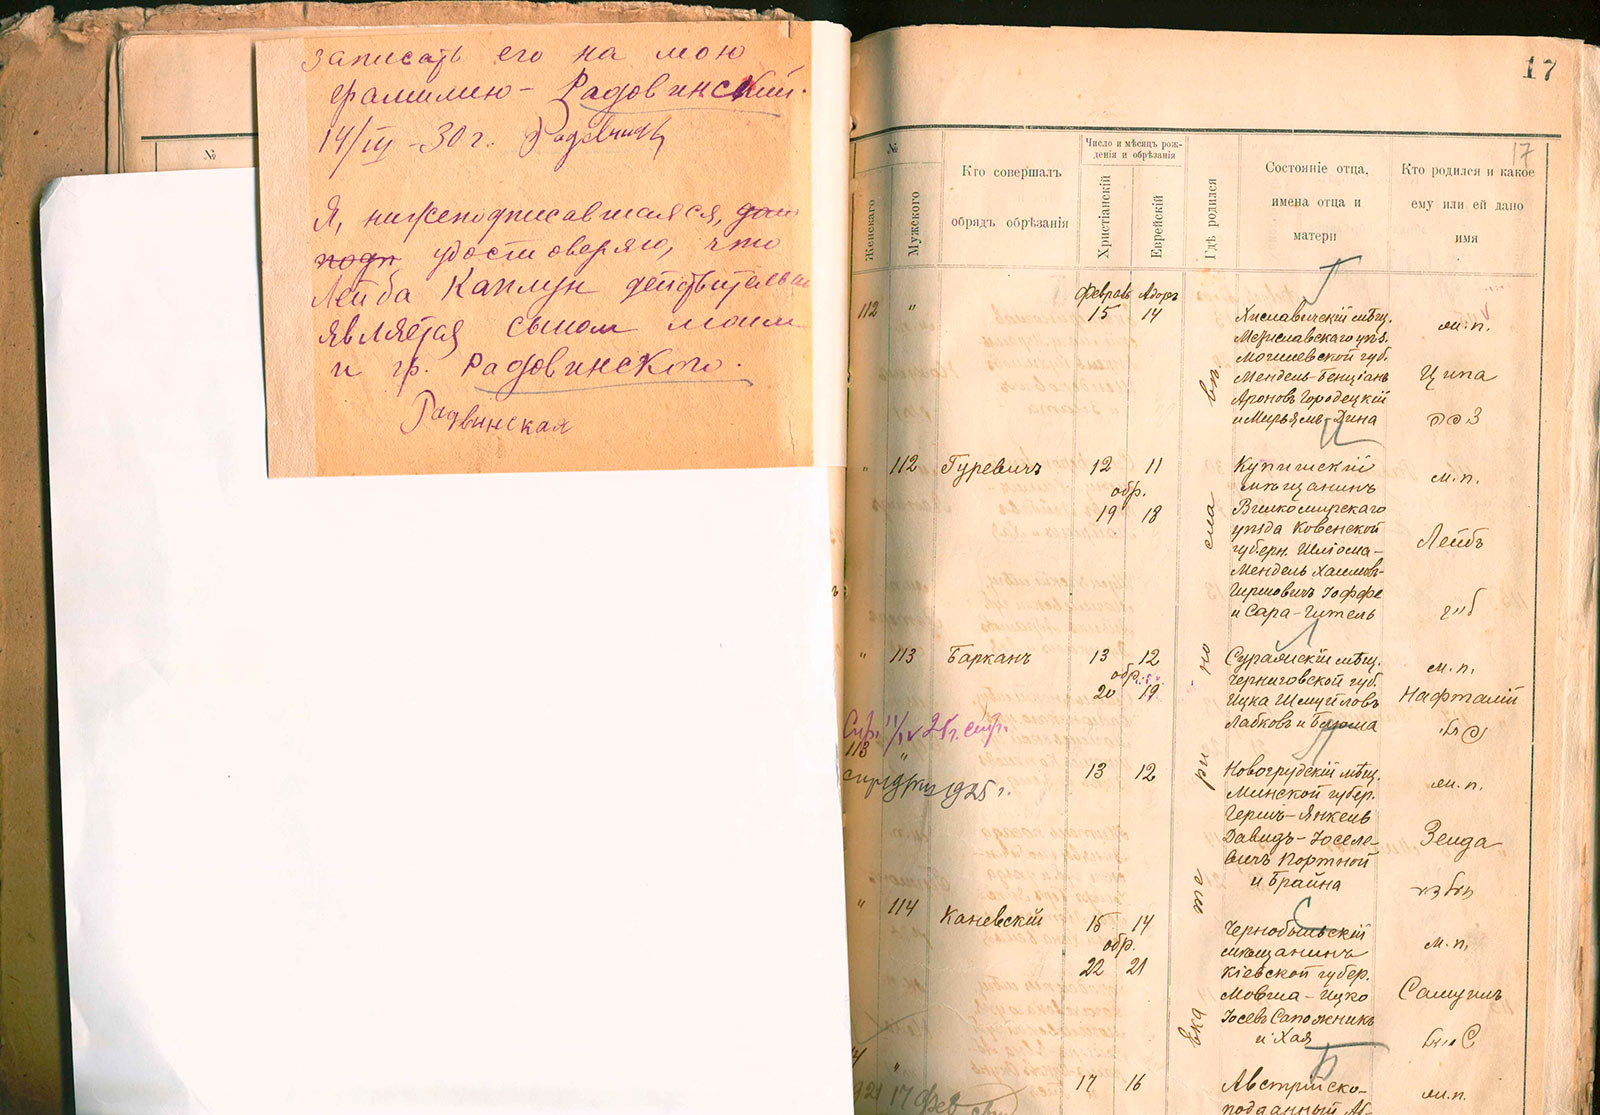 записать его на мою
фамилию – Радовинский.
14/III – 30 г.
Я, нижеподписавшаяся, даю
подп удостоверяю, что
Лейба Каплун действительно
является сыном моим
и гр. Радовинского.
Радвинская
№
17
17
№
Женскаго
Мужского
Кто совершалъ
обрядъ обрѣзанія
Число и мѣсяцъ рож-
денія и обрѣзанія
Христіанскій
Еврейскій
Гдѣ родился
Состояніе отца,
имена отца и
матери
Кто родился и какое
ему или ей дано
имя
Екатеринославъ
112 "
Февраль Адоръ
15 14
Хиславичскій мѣщ.
Мстиславскаго уѣз.
Могилевской губ.
Мендель-Бенціанъ
Ароновъ Городецкій
и Мирьямъ-Дина
ж.п.
Ципа
" 112 Гуревичъ
12 11
обр.
19 18
Купишскій
мѣщанинъ
Вилкомирскаго
уѣзда Ковенской
губерн. Шліома-
Мендель Хаимовъ-
Гиршовичъ Іоффе
и Сара-Гитель
м.п.
Лейбъ
" 113 Барканъ
13 12
обр.
20 19
Суражскій мѣщ.
Черниговской губ.
Ицка Шмуйловъ
Лабковъ и Барма
м.п.
Нафталій
113 "
1925 г.
13 12
Новогрудскій мѣщ.
Минской губер.
Гершъ-Янкель
Давидъ-Іоселе-
вичъ Портной
и Брайна
ж.п.
Зелда
" 114 Каневскій
15 14
обр.
22 21
Чернобыльскій
мѣщанинъ
Кіевской губер.
Мовша-Ицко
Іосевъ Сапожникъ
и Хая
м.п.
Самуилъ
17 16
Австрійско-
подданный
ж.п.